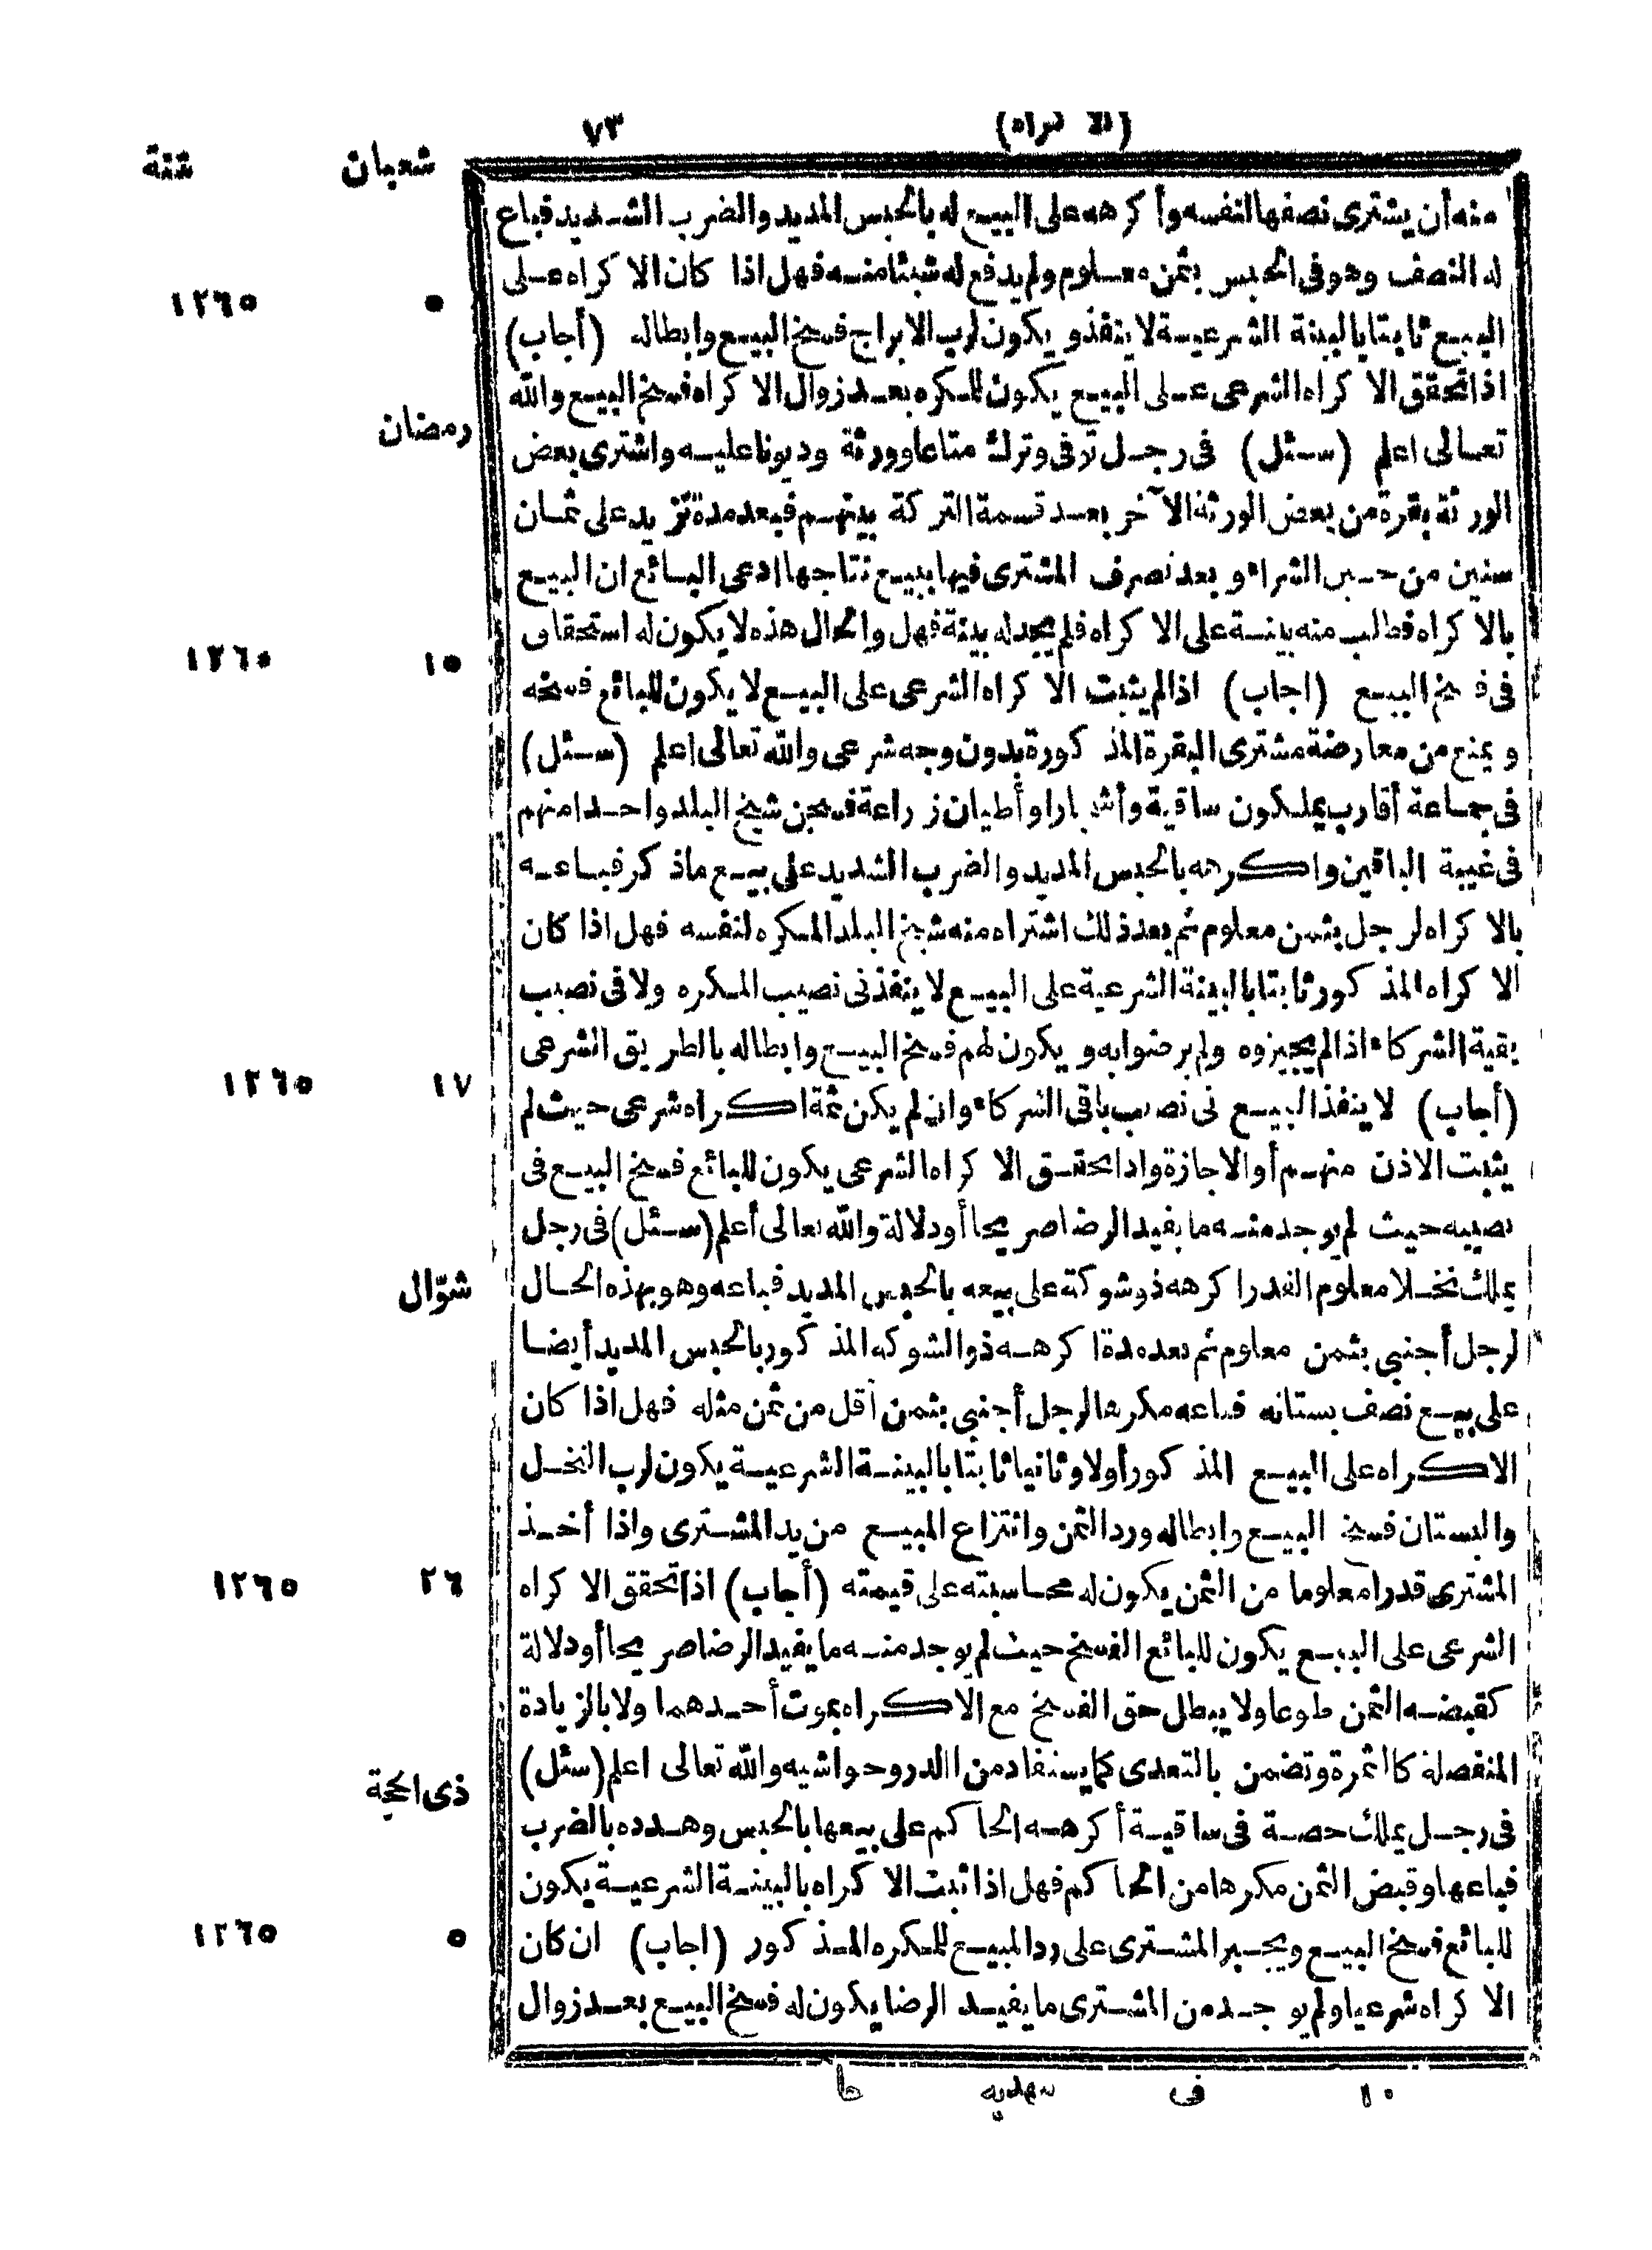 (الاكراه) ٧٣
شعبان سنة
منه أن يشترى نصفها لنفسه وأكرهه على البيع له بالحبس المديد والضرب الشديد فباع
له النصف وهو فى الحبس بثمن معلوم ولم يدفع له شيئا منه فهل اذا كان الاكراه على
٥ ١٢٦٥
البيع ثابتا بالبينة الشرعية لا ينفذ ويكون لرب الابراج فسخ البيع وابطاله (أجاب)
اذا تحقق الاكراه الشرعى على البيع يكون للمكره بعد زوال الاكراه فسخ البيع والله
رمضان
تعالى اعلم (سئل) فى رجل توفى وترك متاعا وورثة وديونا عليه واشترى بعض
الورثة بقرة من بعض الورثة الآخر بعد قسمة التركة بينهم فبعد مدة تزيد على ثمان
سنين من حين الشراء وبعد تصرف المشترى فيها ببيع نتاجها ادعى البائع ان البيع
بالاكراه فطلب منه بينة على الاكراه فلم يجد له بينة فهل والحال هذه لا يكون له استحقاق
١٥ ١٢٦٥
فى فسخ البيع (اجاب) اذا لم يثبت الاكراه الشرعى على البيع لا يكون للبائع فسخه
ويمنع من معارضة مشترى البقرة المذكورة بدون وجه شرعى والله تعالى اعلم (سئل)
فى جماعة أقارب يملكون ساقية وأشجارا وأطيان زراعة فسجن شيخ البلد واحدا منهم
فى غيبة الباقين واكرهه بالحبس المديد والضرب الشديد على بيع ماذكر فباعه
بالاكراه لرجل بثمن معلوم ثم بعد ذلك اشتراه منه شيخ البلد المكره لنفسه فهل اذا كان
الاكراه المذكور ثابتا بالبينة الشرعية على البيع لا ينفذ فى نصيب المكره ولا فى نصيب
بقية الشركاء اذا لم يجيزوه ولم يرضوا به ويكون لهم فسخ البيع وابطاله بالطريق الشرعى
١٧ ١٢٦٥
(أجاب) لا ينفذ البيع فى نصيب باقى الشركاء وان لم يكن ثمة اكراه شرعى حيث لم
يثبت الاذن منهم أو الاجازة واذا تحقق الاكراه الشرعى يكون للبائع فسخ البيع فى
نصيبه حيث لم يوجد منه ما يفيد الرضا صريحا أو دلالة والله تعالى أعلم (سئل) فى رجل
شوّال
يملك نخلا معلوم القدر اكرهه ذو شوكة على بيعه بالحبس المديد فباعه وهو بهذه الحال
لرجل أجنبى بثمن معلوم ثم بعد مدة اكرهه ذو الشوكه المذكور بالحبس المديد أيضا
على بيع نصف بستانه فباعه مكرها لرجل أجنبى بثمن أقل من ثمن مثله فهل اذا كان
الاكراه على البيع المذكور أولا وثانيا ثابتا بالبينة الشرعية يكون لرب النخل
والبستان فسخ البيع وابطاله ورد الثمن وانتزاع المبيع من يد المشترى واذا أخذ
المشترى قدرا معلوما من الثمن يكون له محاسبته على قيمته (أجاب) اذا تحقق الاكراه
٢٦ ١٢٦٥
الشرعى على البيع يكون للبائع الفسخ حيث لم يوجد منه ما يفيد الرضا صريحا أو دلالة
كقبضه الثمن طوعا ولا يبطل حق الفسخ مع الاكراه بموت أحدهما ولا بالزيادة
المنفصلة كالثمرة وتضمن بالتعدى كما يستفاد من الدر وحواشيه والله تعالى اعلم (سئل)
ذى الحجة
فى رجل يملك حصة فى ساقية أكرهه الحاكم على بيعها بالحبس وهدده بالضرب
فباعها وقبض الثمن مكرها من الحاكم فهل اذا ثبت الاكراه بالبينة الشرعية يكون
للبائع فسخ البيع ويجبر المشترى على رد المبيع للمكره المذكور (اجاب) ان كان
٥ ١٢٦٥
الاكراه شرعيا ولم يوجد من المشترى ما يفيد الرضا يكون له فسخ البيع بعد زوال
١٠ فى مهديه